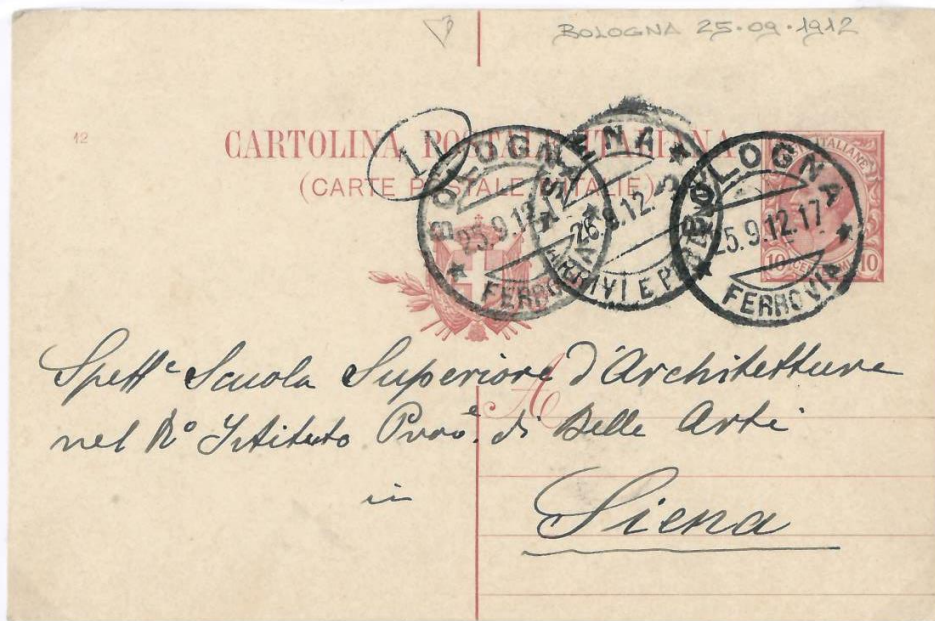 BOLOGNA 25·09·1912
12
CARTOLINA POSTALE ITALIANA
(CARTE POSTALE D'ITALIE)
1
BOLOGNA
25.9.12
FERROVIA
SIENA
26.9.12
ARRIVI E PARTENZE
BOLOGNA
25.9.12.17
FERROVIA
POSTE ITALIANE
10 CENTESIMI 10
A
Spettᵉ Scuola Superiore d'Architettura
nel Rº Istituto Provᵉ. di Belle Arti
in
Siena